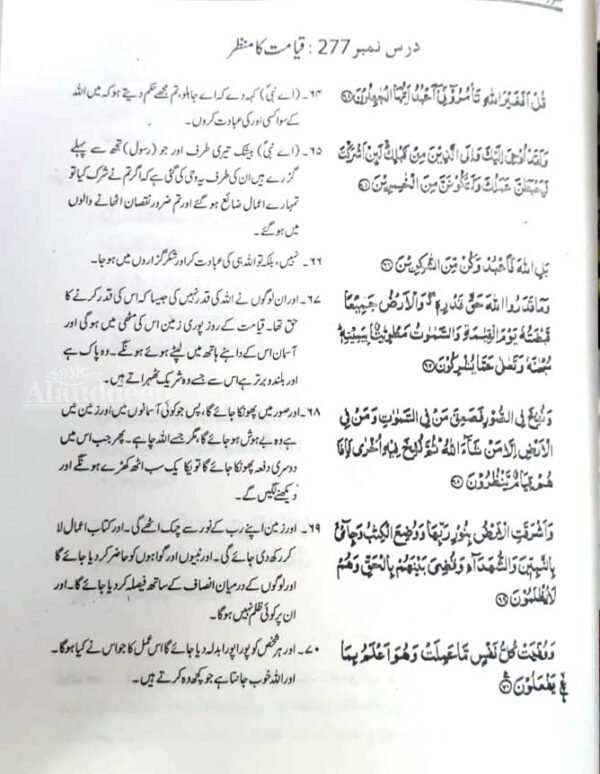 درس نمبر 277: قیامت کا منظر
قُلْ اَفَغَیْرَ اللّٰهِ تَاْمُرُوْٓنِّیْٓ اَعْبُدُ اَیُّهَا الْجٰهِلُوْنَ ﴿۶۴﴾
۶۴۔ (اے نبیؐ) کہہ دے کہ اے جاہلو، تم مجھے حکم دیتے ہو کہ میں اللہ
کے سوا کسی اور کی عبادت کروں۔
وَلَقَدْ اُوْحِیَ اِلَیْكَ وَاِلَی الَّذِیْنَ مِنْ قَبْلِكَ لَئِنْ اَشْرَكْتَ
لَیَحْبَطَنَّ عَمَلُكَ وَلَتَكُوْنَنَّ مِنَ الْخٰسِرِیْنَ ﴿۶۵﴾
۶۵۔ (اے نبیؐ) بیشک تیری طرف اور جو (رسول) تجھ سے پہلے
گزرے ہیں ان کی طرف یہ وحی کی گئی ہے کہ اگر تم نے شرک کیا تو
تمہارے اعمال ضائع ہو گئے اور تم ضرور نقصان اٹھانے والوں
میں ہو گئے۔
بَلِ اللّٰهَ فَاعْبُدْ وَكُنْ مِّنَ الشّٰكِرِیْنَ ﴿۶۶﴾
۶۶۔ نہیں، بلکہ تو اللہ ہی کی عبادت کر اور شکر گزاروں میں ہو جا۔
وَمَا قَدَرُوا اللّٰهَ حَقَّ قَدْرِهٖ وَالْاَرْضُ جَمِیْعًا
قَبْضَتُهٗ یَوْمَ الْقِیٰمَةِ وَالسَّمٰوٰتُ مَطْوِیّٰتٌۢ بِیَمِیْنِهٖ
سُبْحٰنَهٗ وَتَعٰلٰی عَمَّا یُشْرِكُوْنَ ﴿۶۷﴾
۶۷۔ اور ان لوگوں نے اللہ کی قدر نہیں کی جیسا کہ اس کی قدر کرنے کا
حق تھا۔ قیامت کے روز پوری زمین اس کی مٹھی میں ہو گی اور
آسمان اس کے داہنے ہاتھ میں لپٹے ہوئے ہونگے۔ وہ پاک ہے
اور بلند و برتر ہے اس سے جسے وہ شریک ٹھہراتے ہیں۔
وَنُفِخَ فِی الصُّوْرِ فَصَعِقَ مَنْ فِی السَّمٰوٰتِ وَمَنْ فِی
الْاَرْضِ اِلَّا مَنْ شَآءَ اللّٰهُ ثُمَّ نُفِخَ فِیْهِ اُخْرٰی فَاِذَا
هُمْ قِیَامٌ یَّنْظُرُوْنَ ﴿۶۸﴾
۶۸۔ اور صور میں پھونکا جائے گا، پس جو کوئی آسمانوں میں اور زمین میں
ہے وہ بے ہوش ہو جائے گا، مگر جسے اللہ چاہے۔ پھر جب اس میں
دوسری دفعہ پھونکا جائے گا تو یکا یک سب اٹھ کھڑے ہونگے اور
دیکھنے لگیں گے۔
وَاَشْرَقَتِ الْاَرْضُ بِنُوْرِ رَبِّهَا وَوُضِعَ الْكِتٰبُ وَجِایْٓءَ
بِالنَّبِیّٖنَ وَالشُّهَدَآءِ وَقُضِیَ بَیْنَهُمْ بِالْحَقِّ وَهُمْ
لَا یُظْلَمُوْنَ ﴿۶۹﴾
۶۹۔ اور زمین اپنے رب کے نور سے چمک اٹھے گی۔ اور کتاب اعمال لا
کر رکھ دی جائے گی۔ اور نبیوں اور گواہوں کو حاضر کر دیا جائے گا
اور لوگوں کے درمیان انصاف کے ساتھ فیصلہ کر دیا جائے گا۔ اور
ان پر کوئی ظلم نہیں ہو گا۔
وَوُفِّیَتْ كُلُّ نَفْسٍ مَّا عَمِلَتْ وَهُوَ اَعْلَمُ بِمَا
یَفْعَلُوْنَ ﴿۷۰﴾
۷۰۔ اور ہر شخص کو پورا پورا بدلہ دیا جائے گا اس عمل کا جو اس نے کیا ہو گا۔
اور اللہ خوب جانتا ہے جو کچھ وہ کرتے ہیں۔